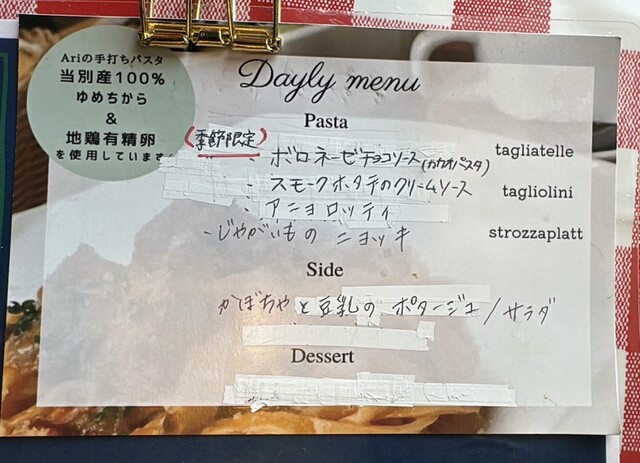 Ariの手打ちパスタ
当別産100%
ゆめちから
&
地鶏有精卵
を使用しています
Dayly menu
Pasta
(季節限定)
・ボロネーゼチョコソース(カカオパスタ) tagliatelle
・スモークホタテのクリームソース tagliolini
・アニョロッティ
・じゃがいものニョッキ strozzaplatt
Side
かぼちゃと豆乳のポタージュ/サラダ
Dessert